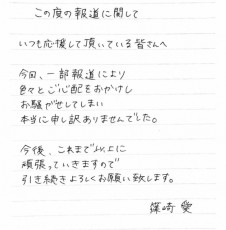 この度の報道に関して
いつも応援して頂いている皆さんへ
今回、一部報道により
色々とご心配をおかけし
お騒がせしてしまい
本当に申し訳ありませんでした。
今後、これまで以上に
頑張っていきますので
引き続きよろしくお願い致します。
篠崎 愛